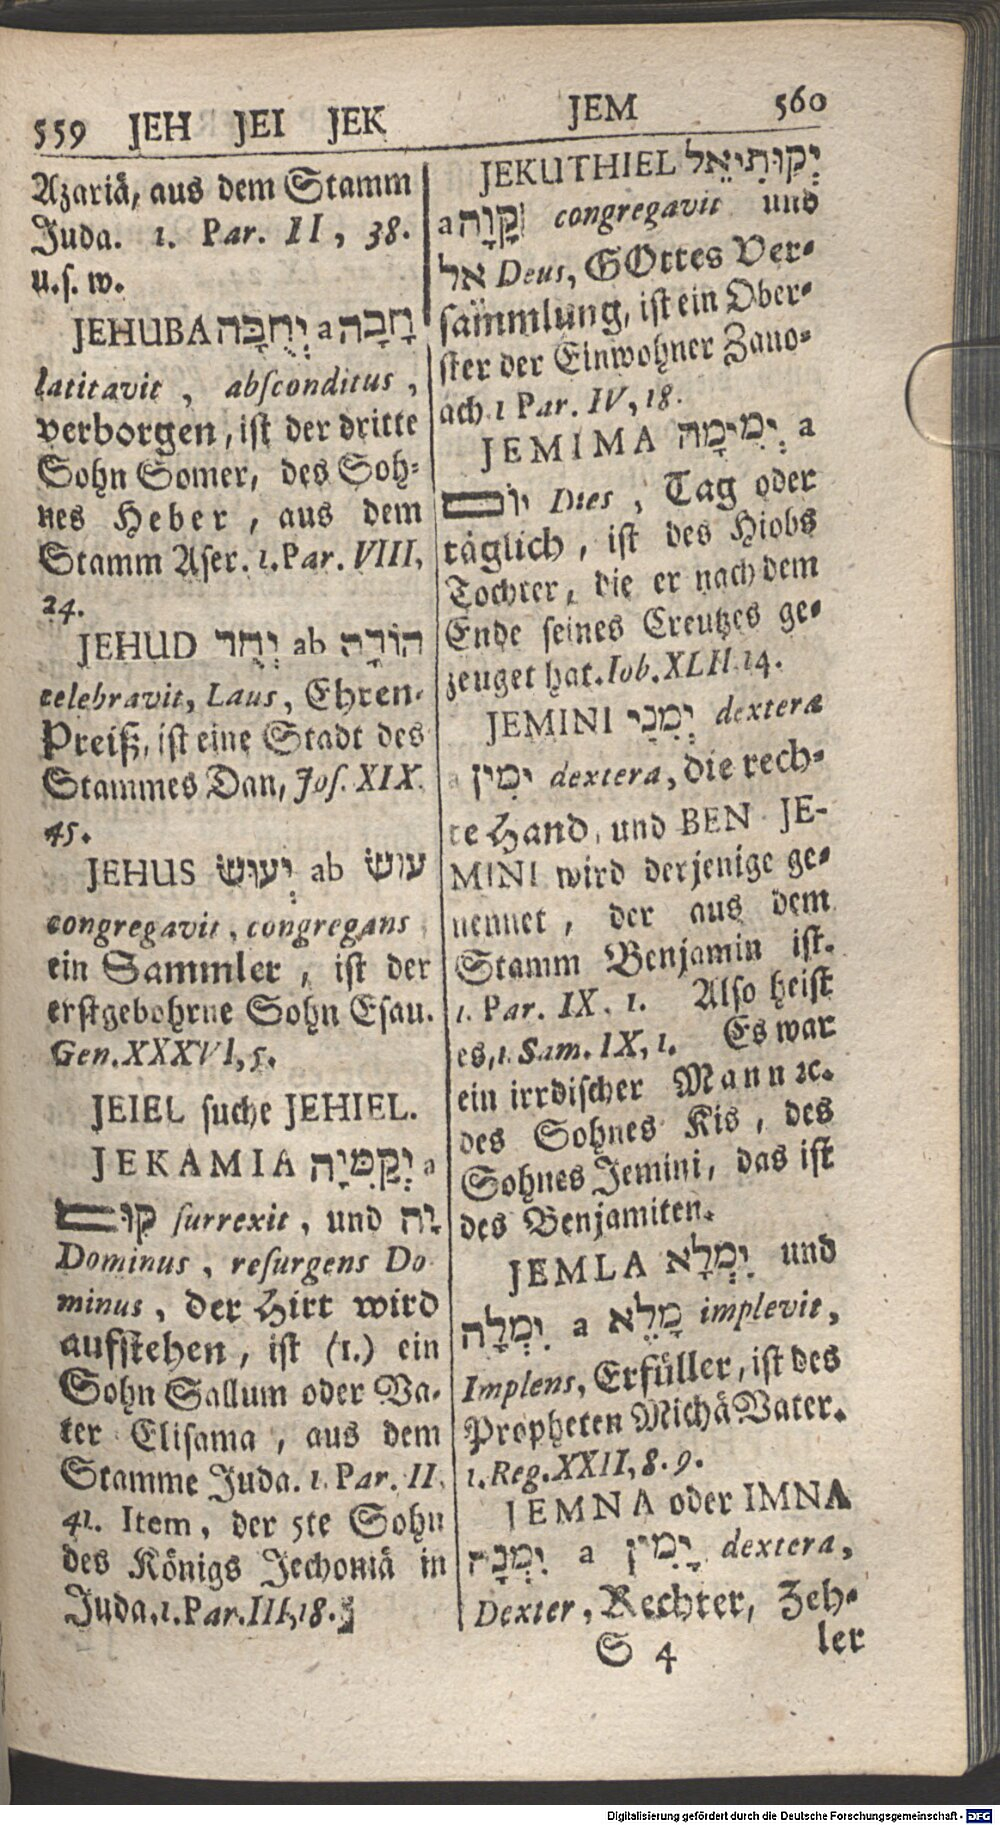 559 JEH JEI JEK
Azariä, aus dem Stamm
Juda. 1. Par. II, 38.
u.s.w.
JEHUBA יְחֻבָּה a חָבָה
latitavit, absconditus,
verborgen, ist der dritte
Sohn Somer, des Soh-
nes Heber, aus dem
Stamm Aser. 1. Par. VIII,
24.
JEHUD יְהֻד ab הוֹדָה
celebravit, Laus, Ehren-
Preiß, ist eine Stadt des
Stammes Dan, Jos. XIX.
45.
JEHUS יְעוּשׁ ab עוּשׁ
congregavit, congregans
ein Sammler, ist der
erstgebohrne Sohn Esau.
Gen. XXXVI, 5.
JEIEL suche JEHIEL.
JEKAMIA יְקַמְיָה a
קוּם surrexit, und יָה
Dominus, resurgens Do-
minus, der Hirt wird
aufstehen, ist (1.) ein
Sohn Sallum oder Va-
ter Elisama, aus dem
Stamme Juda. 1. Par. II.
41. Item, der 5te Sohn
des Königs Jechoniä in
Juda. 1. Par. III, 18.
JEM 560
JEKUTHIEL יְקוּתִיאֵל
a קָוָה congregavit und
אל Deus, GOttes Ver-
sammlung, ist ein Ober-
ster der Einwohner Zano-
ach 1 Par. IV, 18.
JEMIMA יְמִימָה a
יוֹם Dies, Tag oder
täglich, ist des Hiobs
Tochter, die er nach dem
Ende seines Creutzes ge-
zeuget hat. Iob. XLII. 14.
JEMINI יְמִנִי dexteræ
a יָמִין dextera, die rech-
te Hand, und BEN JE-
MINI wird derjenige ge-
nennet, der aus dem
Stamm Benjamin ist.
1. Par. IX. 1. Also heist
es, 1. Sam. IX, 1. Es war
ein irrdischer Mann ꝛc.
des Sohnes Kis, des
Sohnes Jemini, das ist
des Benjamiten.
JEMLA יִמְלָא und
יִמְלָה a מָלֵא implevit,
Implens, Erfüller, ist des
Propheten Michä Vater.
1. Reg. XXII, 8. 9.
JEMNA oder IMNA
יִמְנָה a יָמִין dextera,
Dexter, Rechter, Zeh-
S 4 ler
Digitalisierung gefördert durch die Deutsche Forschungsgemeinschaft - DFG